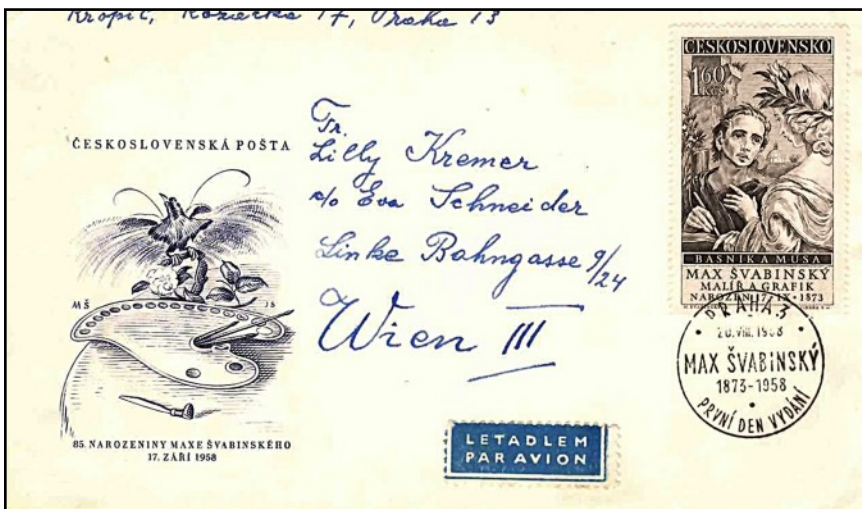 Kropić, Kozácká 17, Praha 13
ČESKOSLOVENSKÁ POŠTA
MŠ JS
85. NAROZENINY MAXE ŠVABINSKÉHO
17. ZÁŘÍ 1958
Fr.
Lilly Kremer
c/o Eva Schneider
Linke Bahngasse 9/24
Wien III
LETADLEM
PAR AVION
ČESKOSLOVENSKO
1 60
KČS
BÁSNÍK A MUSA
MAX ŠVABINSKÝ
MALÍŘ A GRAFIK
NAROZEN 17 · IX · 1873
PRAHA 3
MAX ŠVABINSKÝ
1873-1958
PRVNÍ DEN VYDÁNÍ